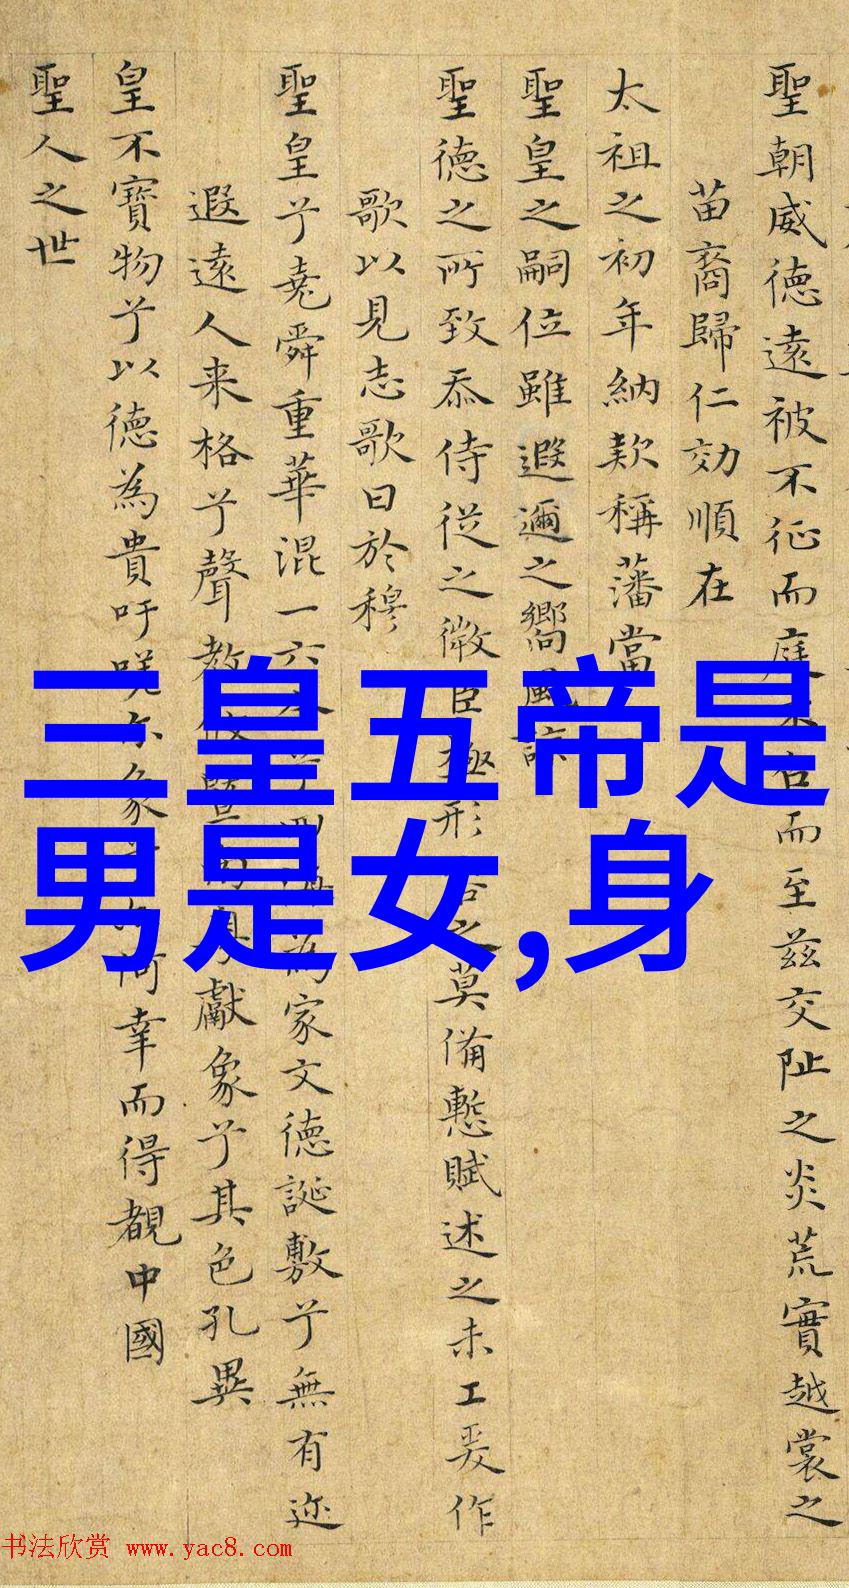 聖朝威德遠被不征而庭召而至茲交阯之炎荒實越裳之
苗裔歸仁効順在
太祖之初年納款稱藩當
聖皇之嗣位雖遐邇之嚮風諒
聖德之所致忝侍從之微臣形容之莫備慙賦述之未工爰作
歌以見志歌曰於穆
聖皇兮堯舜重華混一六兮海為家文德誕敷兮無有迩
遐遠人来格兮聲教獻象兮其色孔異
皇不寶物兮以德為貴吁嗟尔象何幸而得覩中國
聖人之世
三皇五帝是
男是女,身
书法欣赏 www.yac8.com